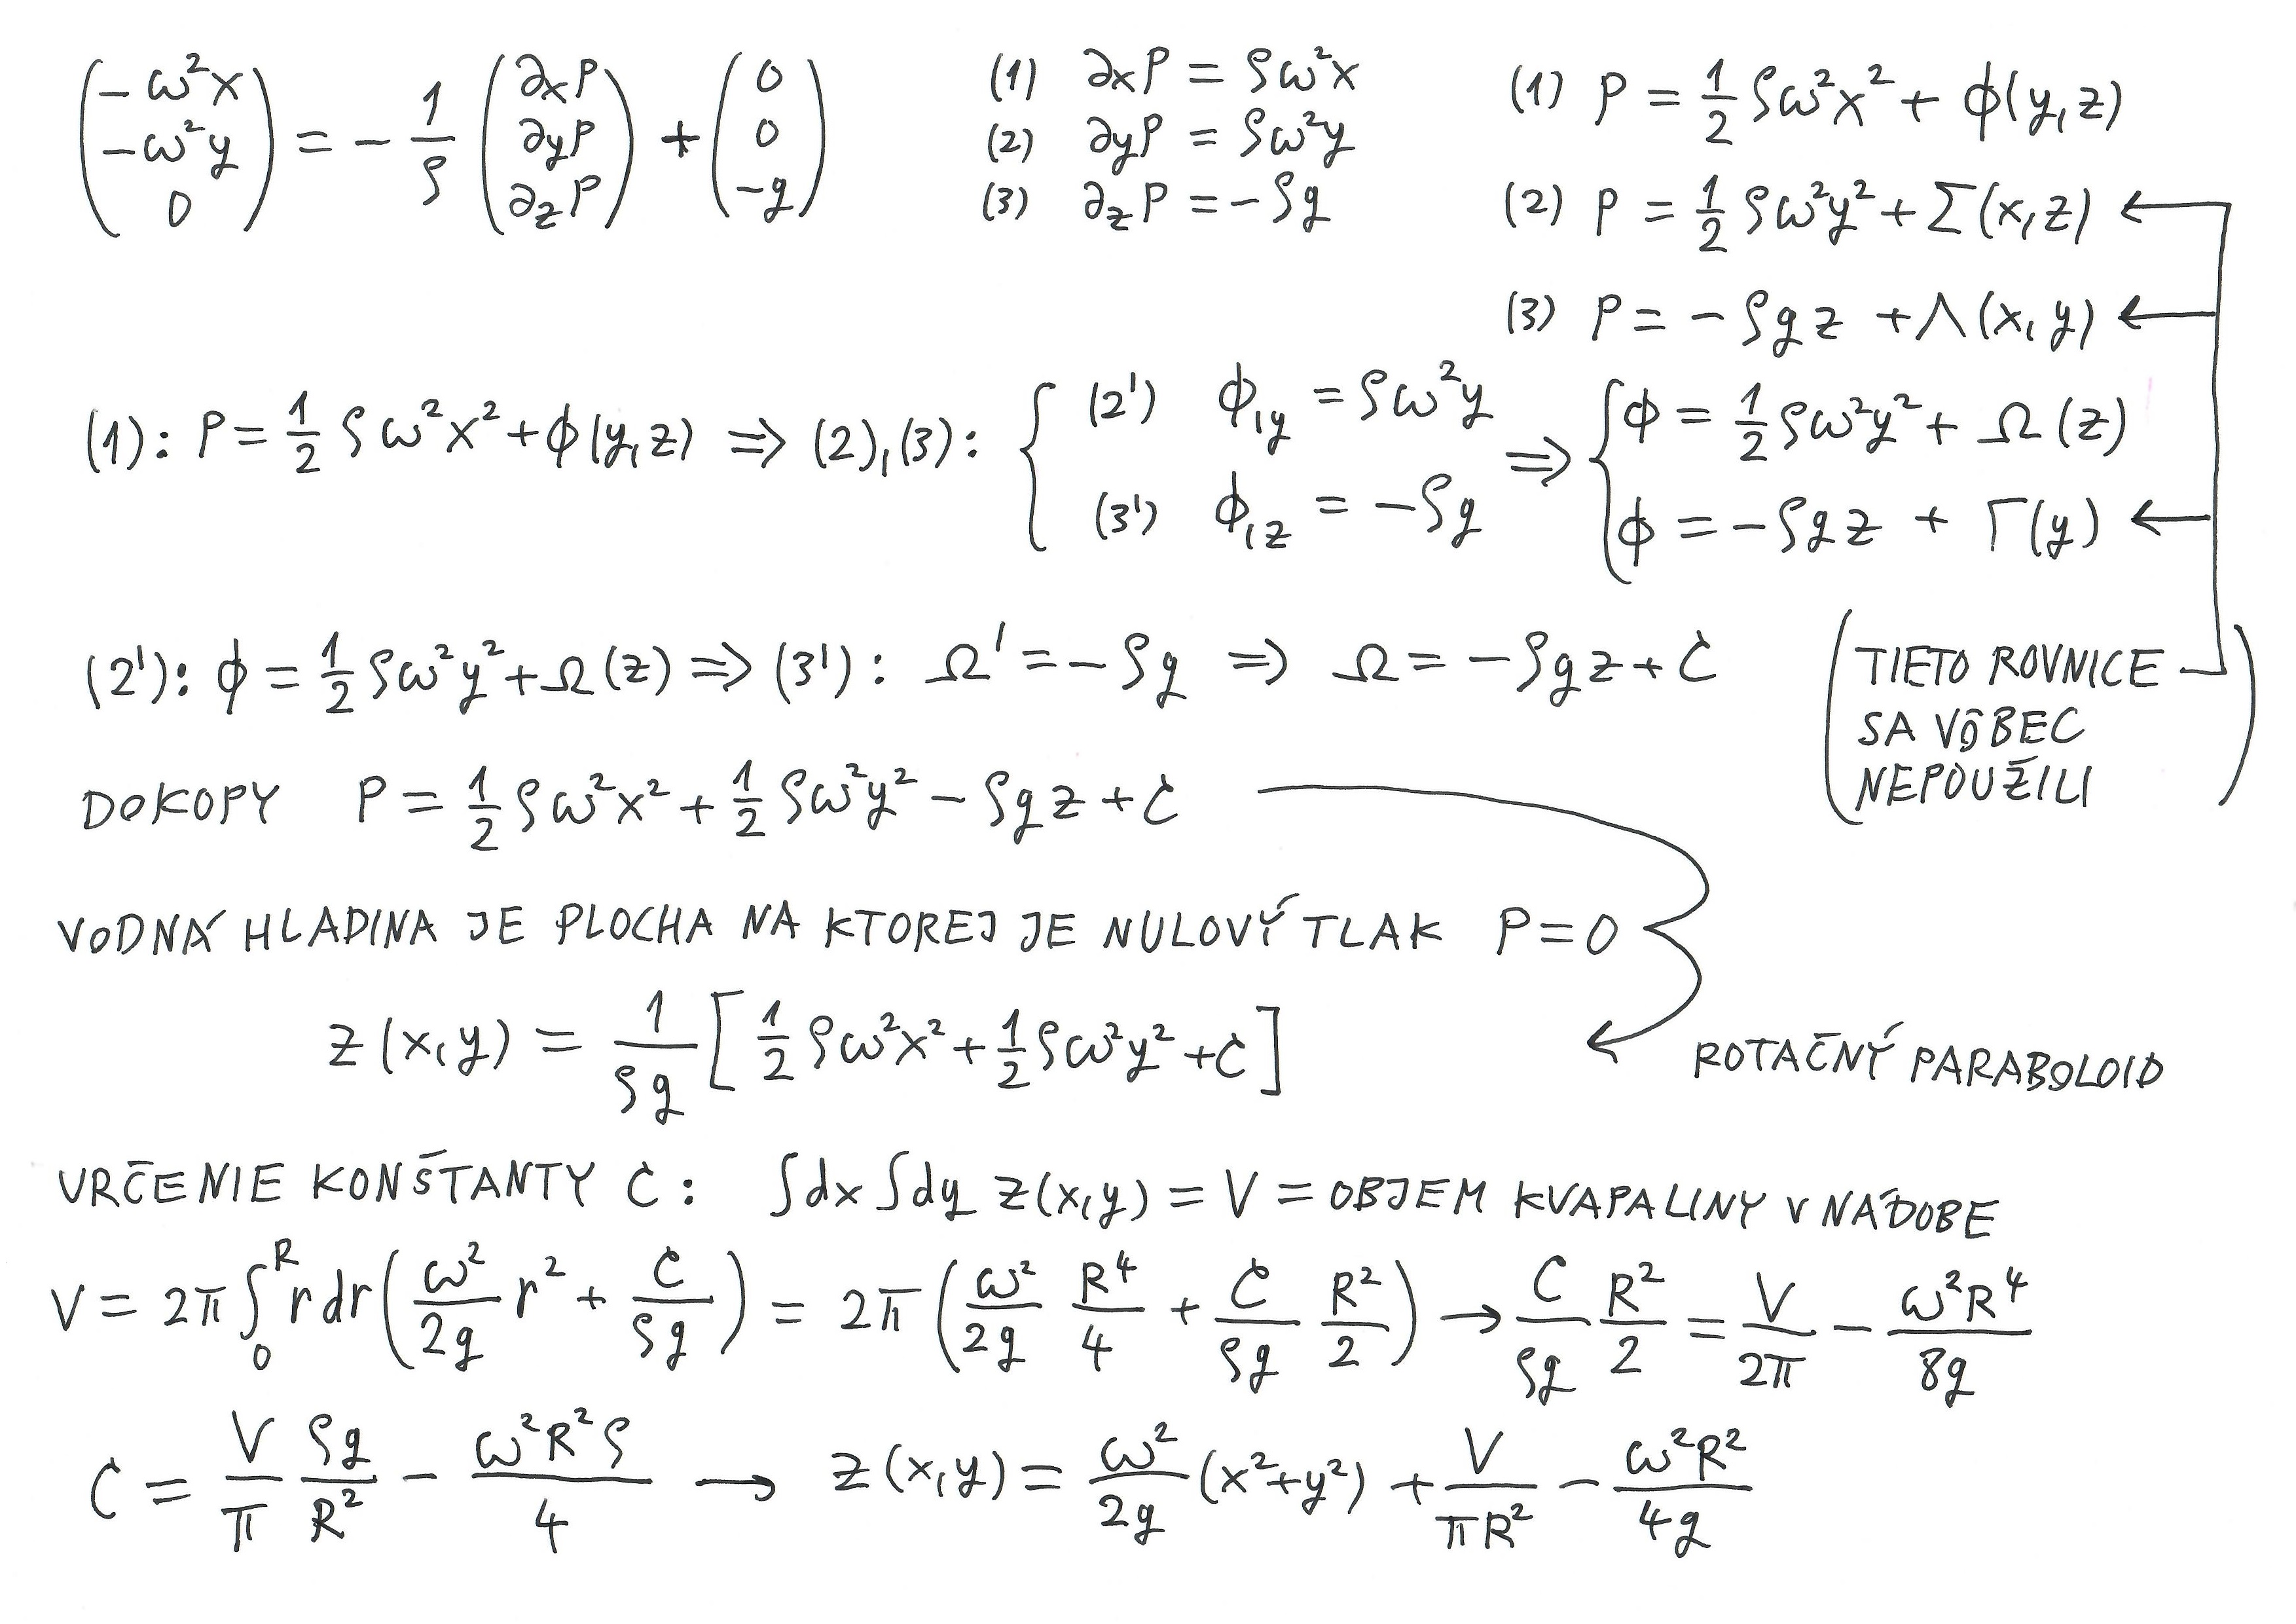 (-ω²x, -ω²y, 0) = - 1/ρ (∂xP, ∂yP, ∂zP) + (0, 0, -g)
(1) ∂xP = ρω²x
(2) ∂yP = ρω²y
(3) ∂zP = -ρg
(1) P = 1/2 ρω²x² + ϕ(y,z)
(2) P = 1/2 ρω²y² + Σ(x,z) ←
(3) P = -ρgz + Λ(x,y) ←
(1): P = 1/2 ρω²x² + ϕ(y,z) ⇒ (2),(3): { (2') ϕ,y = ρω²y ⇒ { ϕ = 1/2 ρω²y² + Ω(z)
(3') ϕ,z = -ρg ϕ = -ρgz + Γ(y) ←
(2'): ϕ = 1/2 ρω²y² + Ω(z) ⇒ (3'): Ω' = -ρg ⇒ Ω = -ρgz + C
(TIETO ROVNICE
SA VÔBEC
NEPOUŽILI)
DOKOPY P = 1/2 ρω²x² + 1/2 ρω²y² - ρgz + C
VODNÁ HLADINA JE PLOCHA NA KTOREJ JE NULOVÝ TLAK P=0
z(x,y) = 1/ρg [1/2 ρω²x² + 1/2 ρω²y² + C] ← ROTAČNÝ PARABOLOID
URČENIE KONŠTANTY C: ∫dx∫dy z(x,y) = V = OBJEM KVAPALINY V NÁDOBE
V = 2π ∫₀ᴿ r dr (ω²/2g r² + C/ρg) = 2π (ω²/2g R⁴/4 + C/ρg R²/2) → C/ρg R²/2 = V/2π - ω²R⁴/8g
C = V/π ρg/R² - ω²R²ρ/4 → z(x,y) = ω²/2g (x²+y²) + V/πR² - ω²R²/4g